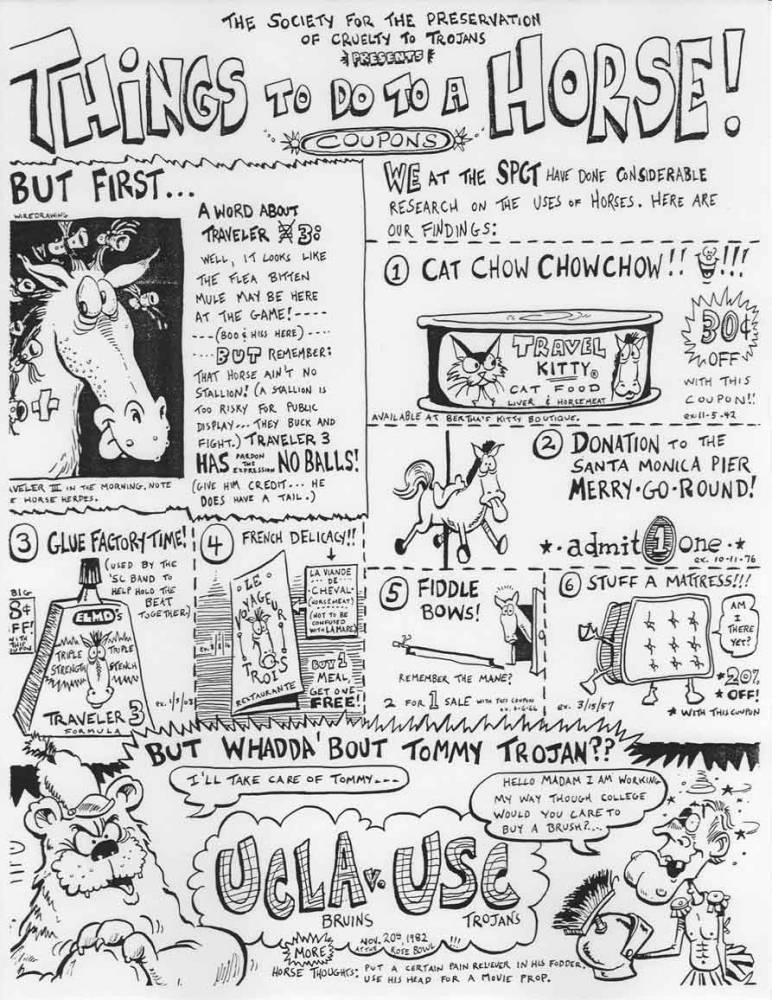 THE SOCIETY FOR THE PRESERVATION
OF CRUELTY TO TROJANS
PRESENTS
THINGS TO DO TO A HORSE!
COUPONS
BUT FIRST...
A WORD ABOUT
TRAVELER 3:
WELL, IT LOOKS LIKE
THE FLEA BITTEN
MULE MAY BE HERE
AT THE GAME!----
---(BOO & HISS HERE)----
----BUT REMEMBER:
THAT HORSE AIN'T NO
STALLION! (A STALLION IS
TOO RISKY FOR PUBLIC
DISPLAY... THEY BUCK AND
FIGHT.) TRAVELER 3
HAS PARDON THE EXPRESSION NO BALLS!
(GIVE HIM CREDIT... HE
DOES HAVE A TAIL.)
VELER III IN THE MORNING, NOTE
E HORSE HERPES.
WE AT THE SPCT HAVE DONE CONSIDERABLE
RESEARCH ON THE USES OF HORSES. HERE ARE
OUR FINDINGS:
1 CAT CHOW CHOWCHOW!! !!!
TRAVEL
KITTY®
CAT FOOD
LIVER & HORSEMEAT
AVAILABLE AT BERTHA'S KITTY BOUTIQUE.
30¢
OFF
WITH THIS
COUPON!!
ex 11-5-42
2 DONATION TO THE
SANTA MONICA PIER
MERRY-GO-ROUND!
admit 1 one
ex. 10-11-76
3 GLUE FACTORY TIME!
(USED BY THE
'SC BAND TO
HELP HOLD THE
BEAT
TOGETHER)
BIG
8¢
FF!
WITH
THIS
ELMO'S
TRIPLE STRENGTH
TRIPLE STENCH
TRAVELER 3
FORMULA
4 FRENCH DELICACY!!
LE
VOYAGEUR
TROIS
RESTAURANTE
LA VIANDE
DE
CHEVAL
(HORSEMEAT)
(NOT TO BE
CONFUSED
WITH LA MARE)
BUY 1
MEAL,
GET ONE
FREE!
5 FIDDLE
BOWS!
REMEMBER THE MANE?
2 FOR 1 SALE WITH THIS COUPON
6 STUFF A MATTRESS!!!
AM
I
THERE
YET?
20%
OFF!
WITH THIS COUPON
ex. 3/15/57
BUT WHADDA' BOUT TOMMY TROJAN??
I'LL TAKE CARE OF TOMMY---
HELLO MADAM I AM WORKING
MY WAY THOUGH COLLEGE
WOULD YOU CARE TO
BUY A BRUSH?...
UCLA v. USC
BRUINS TROJANS
NOV. 20th, 1982
AT THE ROSE BOWL!!!
MORE
HORSE THOUGHTS: PUT A CERTAIN PAIN RELIEVER IN HIS FODDER.
USE HIS HEAD FOR A MOVIE PROP.